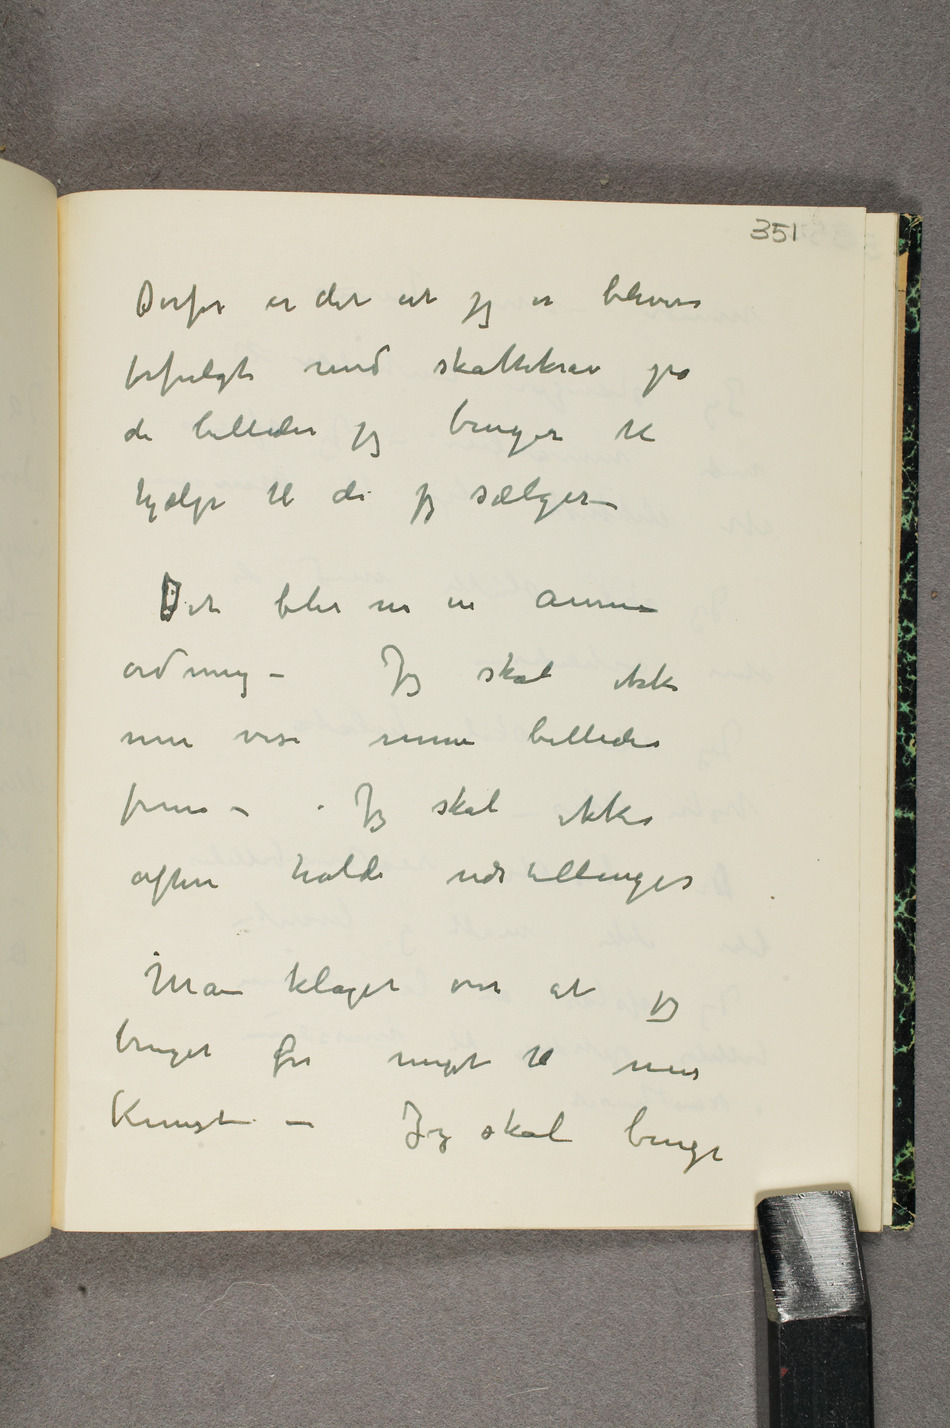 351
Derfor er det at jeg er bleven
forfulgt med skattekrav på
de billeder jeg bruger til
hjælp til de jeg sælger –
Det blir nu en annen
ordning – Jeg skal ikke
mer vise mine billeder
frem – Jeg skal ikke
oftere holde udstillinger
Man klaget over at jeg
bruget for meget til min
Kunst – Jeg skal bruge